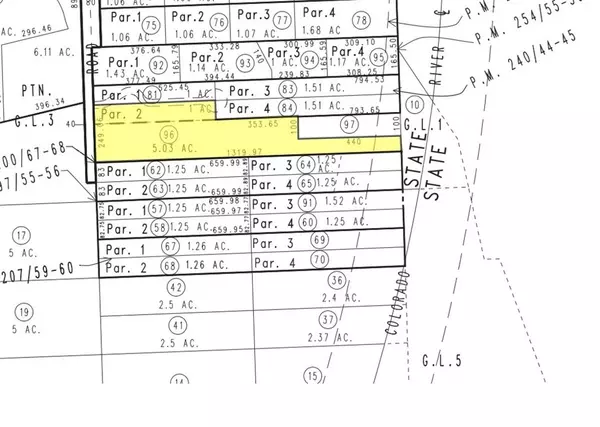 AC. 296.46
6.11 AC.
PTN.
396.34
G.L.3
40
89
80
ROAD
Par.1 75
1.06 AC.
Par.2 76
1.06 AC.
Par.3 77
1.07 AC.
Par.4 78
1.68 AC.
376.64
Par.1 92
1.43 AC.
377.49
165.79
333.28
Par.2 93
1.14 AC.
394.44
140
300.99
Par.3 94
1 AC.
239.83
165.59
309.10
Par.4 95
1.17 AC.
308.25
165.50
P.M.
P.M. 254/55-5
P.M. 240/44-45
RIVER
Par. 1 81 525.45
1 AC.
Par. 2 1 AC.
794.53
Par. 3 83 1.51 AC.
Par. 4 84 1.51 AC.
793.65
353.65
100
97
440
100
96
5.03 AC.
1319.97
10
G.L.1
STATE
STATE
00/67-68
7/55-56
207/59-60
83
Par. 1 62 1.25 AC. 659.99
Par. 3 64 1.25 AC.
83
Par. 2 63 1.25 AC. 659.99
Par. 4 65 1.25 AC.
Par. 1 57 1.25 AC. 659.98
659.97
Par. 3 91 1.52 AC.
Par. 2 58 1.25 AC. 659.95
Par. 4 60 1.25 AC.
Par. 1 67 1.26 AC.
Par. 3 69
Par. 2 68 1.26 AC.
Par. 4 70
17
5 AC.
19
5 AC.
42
2.5 AC.
36
2.4 AC.
41
2.5 AC.
37
2.37 AC.
14
15
COLORADO
G.L.5